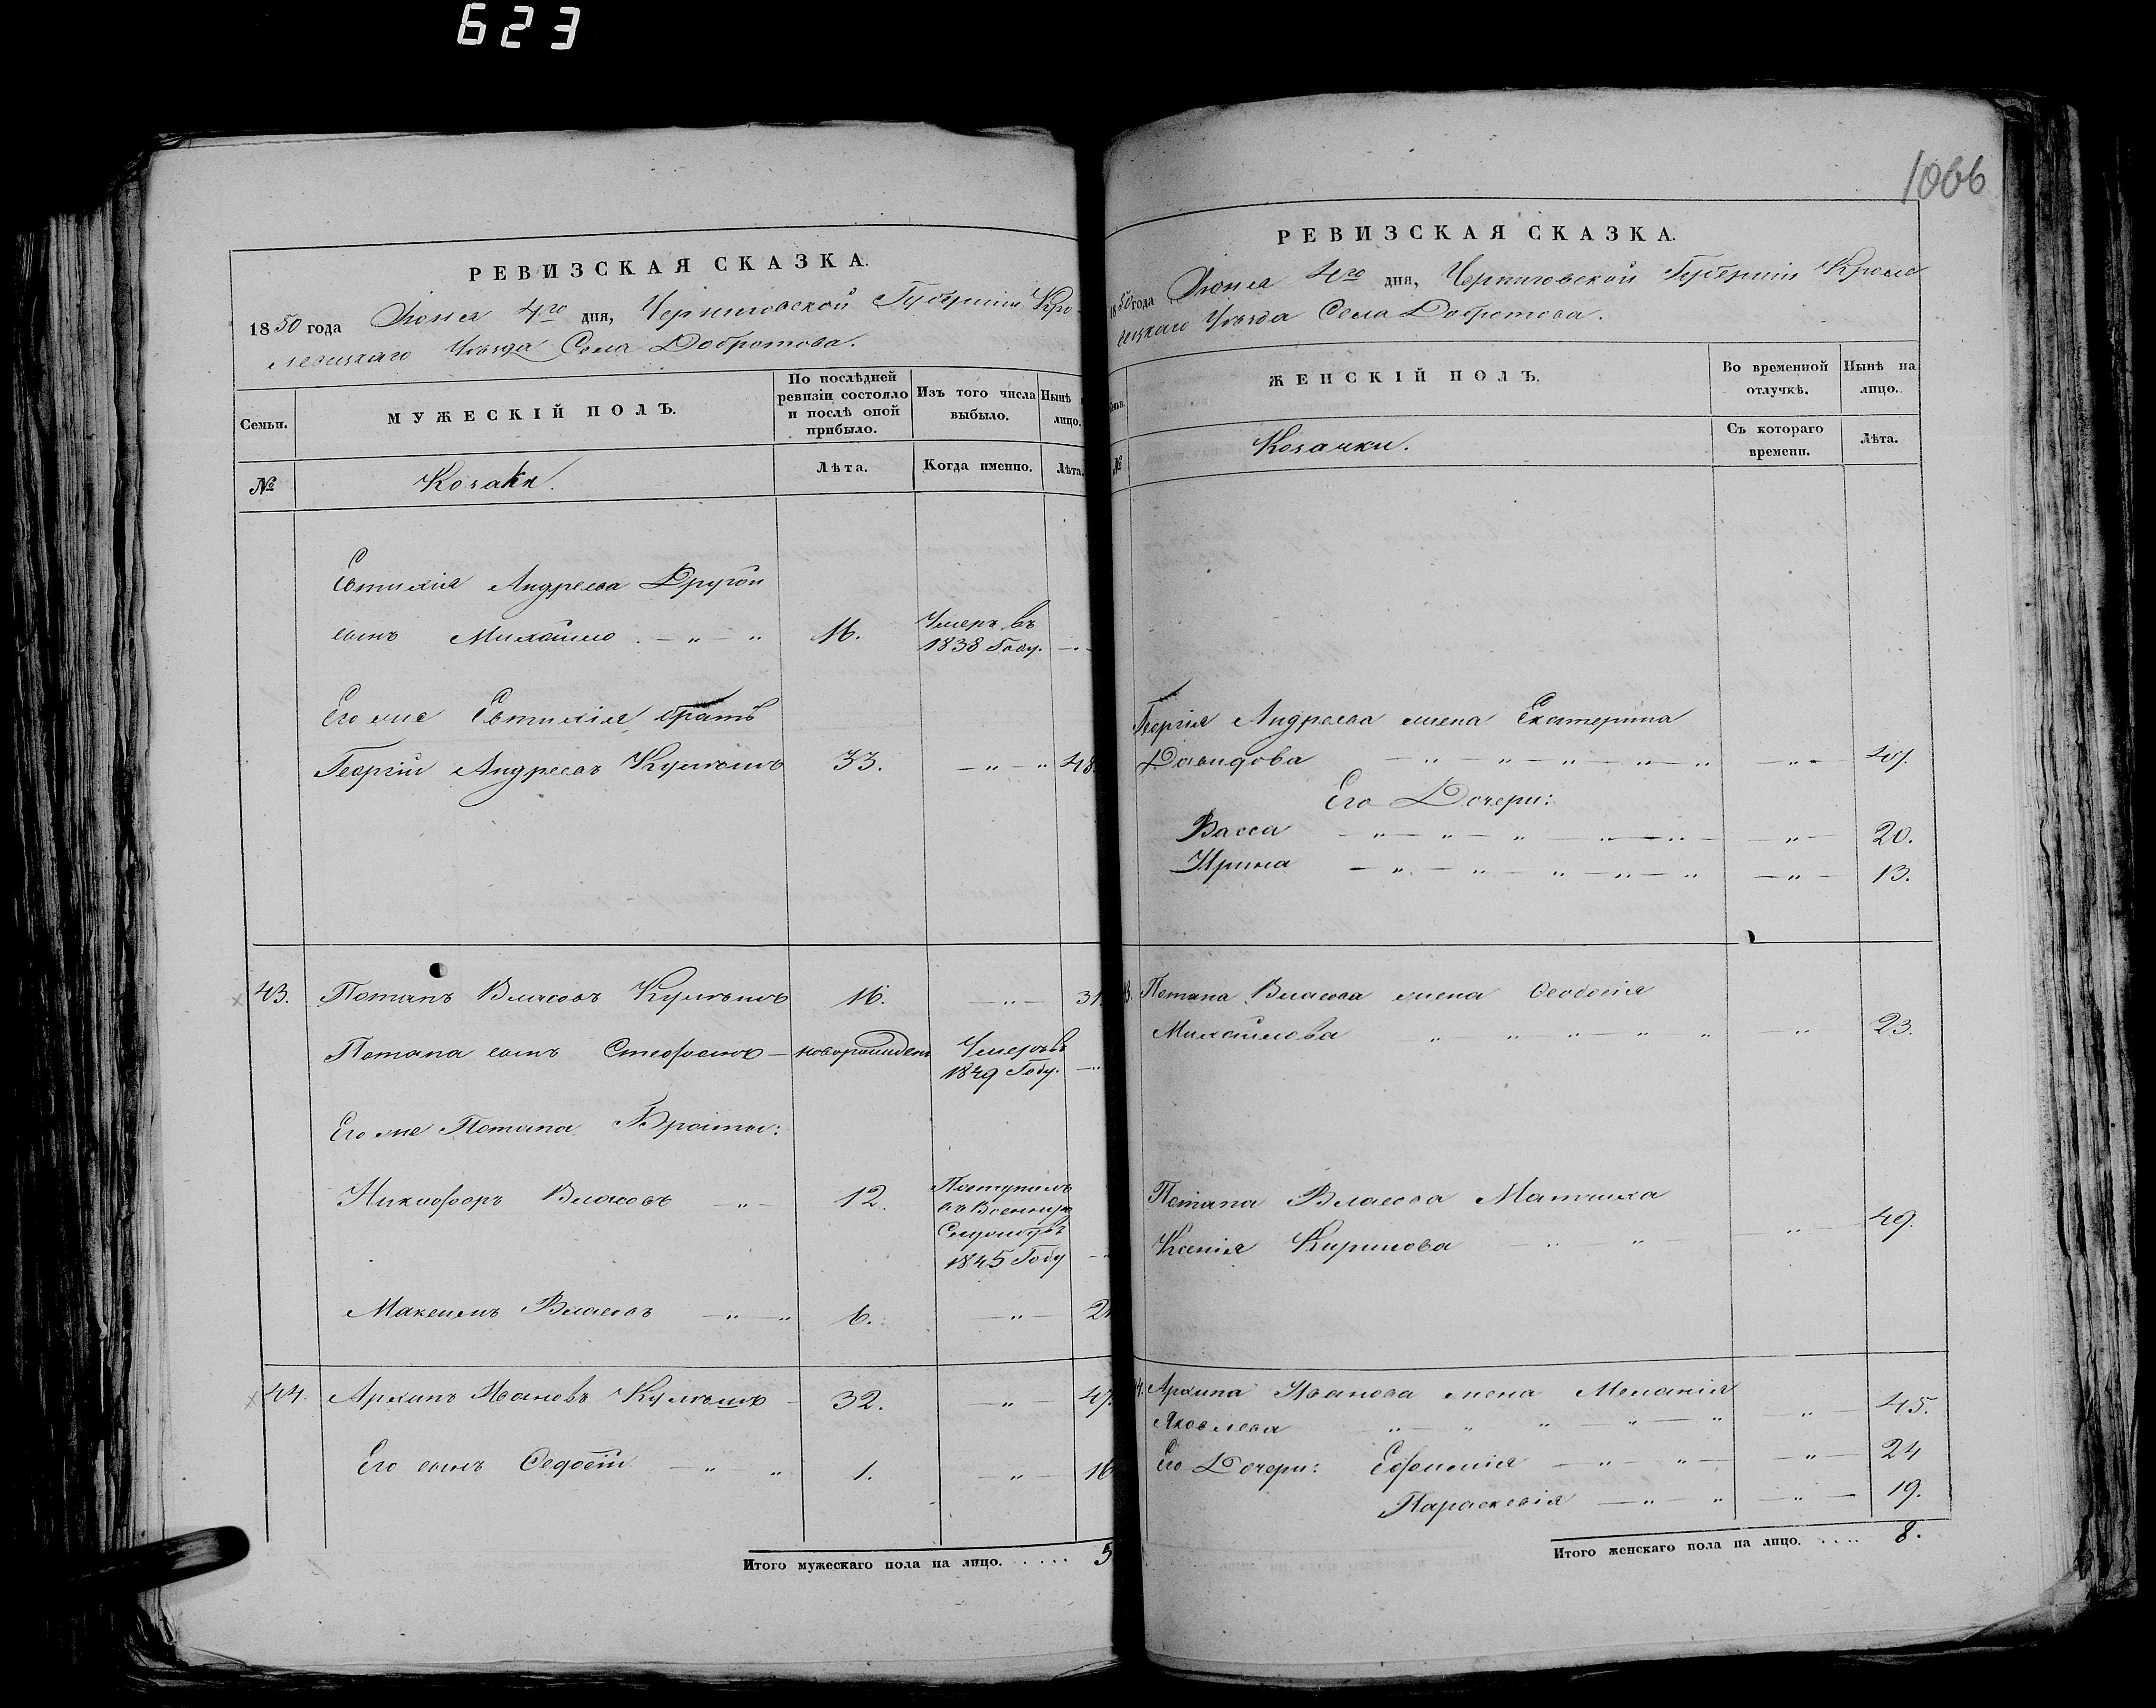 623
1066
РЕВИЗСКАЯ СКАЗКА.
1850 года Іюня 4го дня, Черниговской Губерніи Кро-
левецкаго Уѣзда Села Добротова.
Семьи.
МУЖЕСКІЙ ПОЛЪ.
По послѣдней
ревизіи состояло
и послѣ оной
прибыло.
Изъ того числа
выбыло.
Нынѣ
лицо.
№
Козаки.
Лѣта.
Когда именно.
Лѣта.
Евтихія Андреева Другой
сынъ Михайло 16. Умеръ въ
1838 Году.
Его же Евтихія братъ
Георгій Андреевъ 33. 48.
43. Потапъ Власовъ 16. 31
Потапа сынъ новорожденъ Умеръ въ
1849 Году.
Его же Потапа Братья:
Никифоръ Власовъ 12. Поступилъ
въ Военную
Службу въ
1845 Году
Максимъ Власовъ 6. 21
44. Архипъ Ивановъ 32. 47.
Его сынъ Федосій 1. 16
Итого мужескаго пола на лицо. ..... 5
РЕВИЗСКАЯ СКАЗКА.
1850 года Іюня 4го дня, Черниговской Губерніи Кроле
вецкаго Уѣзда Села Добротова.
ЖЕНСКІЙ ПОЛЪ.
Во временной
отлучкѣ.
Нынѣ на
лицо.
№
Козачки.
Съ котораго
времени.
Лѣта.
Георгія Андреева жена Екатерина
Давидова
Его Дочери:
Васса 20.
Ирина 13.
Потапа Власова жена Феодосія
Михайлова 23.
Потапа Власова Мачиха
Ксенія Кирилова 49.
Архипа Иванова жена Меланія
Яковлева 45.
Его Дочери: Евфимія 24
Параскевія 19.
Итого женскаго пола на лицо. .... 8.